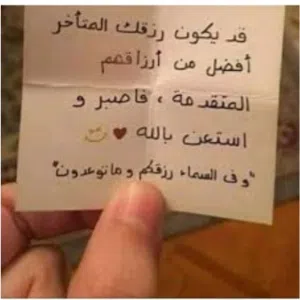 قد يكون رزقك المتأخر
أفضل من أرزاقهم
المتقدمة ، فاصبر و
استعن بالله ♥
"وفي السماء رزقكم وما توعدون"